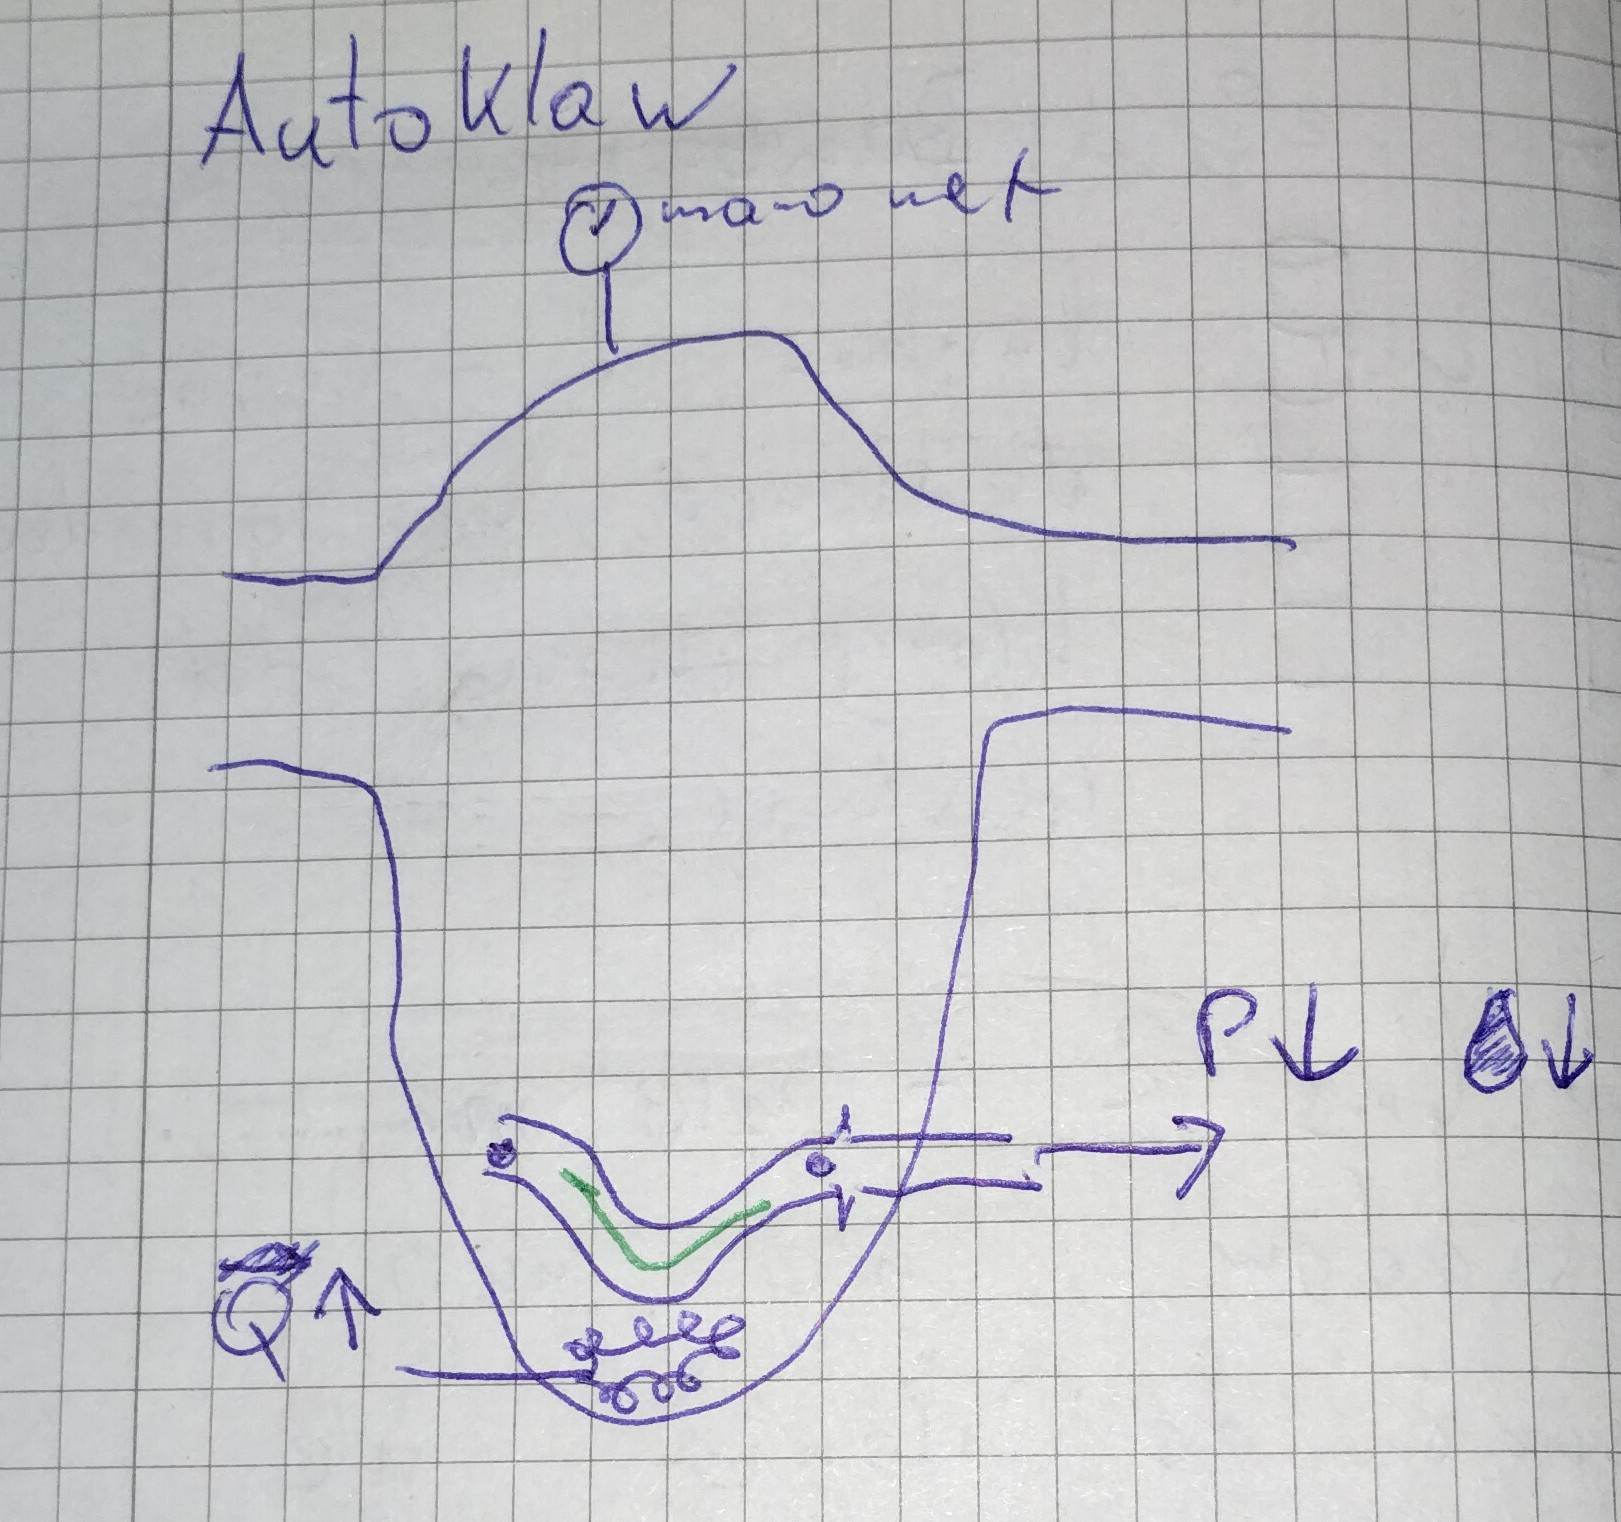 Autoklaw
manomet
P↓ ↓
Q↑